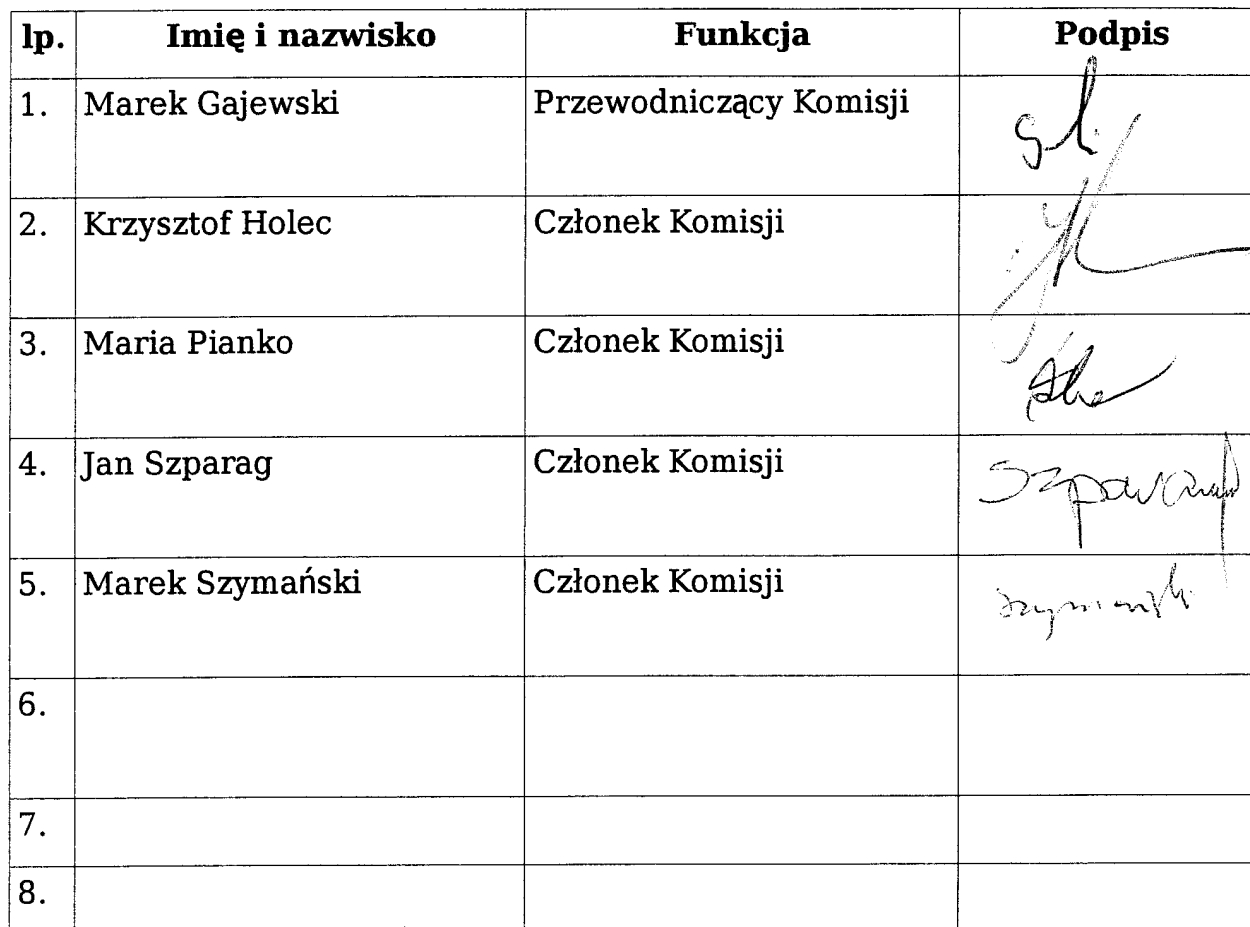 lp. Imię i nazwisko Funkcja Podpis
1. Marek Gajewski Przewodniczący Komisji
2. Krzysztof Holec Członek Komisji
3. Maria Pianko Członek Komisji
4. Jan Szparag Członek Komisji Szparag
5. Marek Szymański Członek Komisji
6.
7.
8.